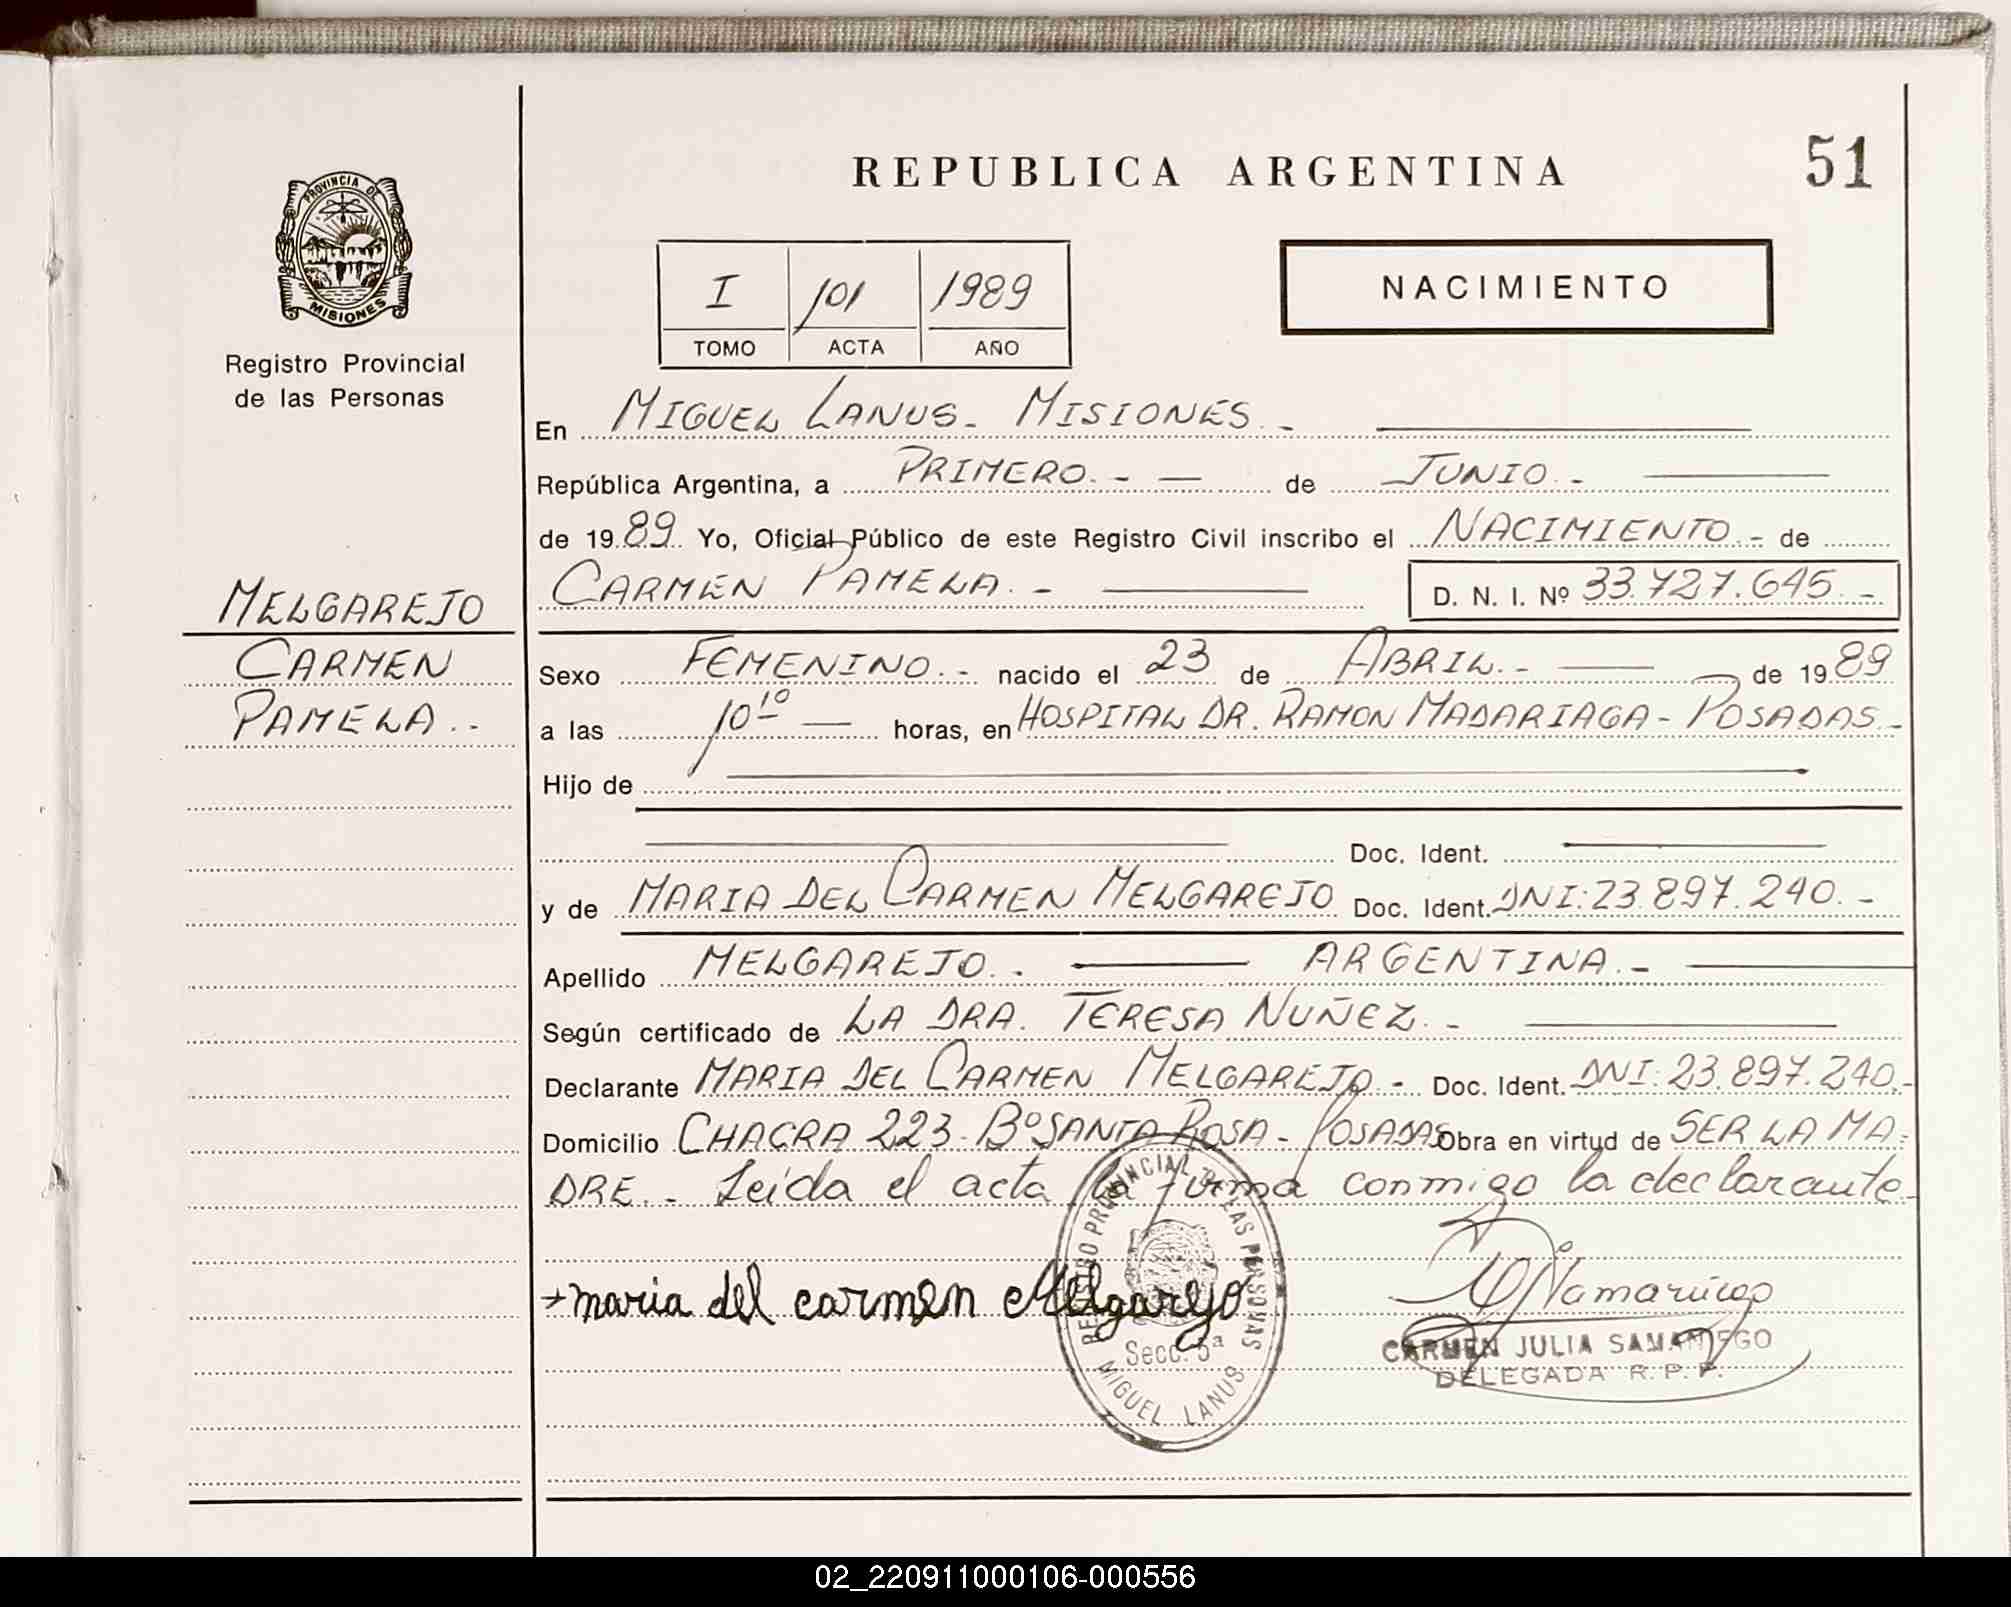 REPUBLICA ARGENTINA
51
PROVINCIA DE
MISIONES
Registro Provincial
de las Personas
I 101 1989
TOMO ACTA AÑO
NACIMIENTO
En MIGUEL LANUS - MISIONES. -
República Argentina, a PRIMERO. - — de JUNIO. -
de 1989. Yo, Oficial Público de este Registro Civil inscribo el NACIMIENTO. - de
CARMEN PAMELA. - D. N. I. Nº 33.727.645. -
MELGAREJO
CARMEN
PAMELA. -
Sexo FEMENINO. - nacido el 23 de ABRIL. - de 1989
a las 10 10 — horas, en HOSPITAL DR. RAMON MADARIAGA - POSADAS -
Hijo de
Doc. Ident.
y de MARIA DEL CARMEN MELGAREJO Doc. Ident. DNI: 23.897.240. -
Apellido MELGAREJO. - ARGENTINA. -
Según certificado de LA DRA. TERESA NUÑEZ. -
Declarante MARIA DEL CARMEN MELGAREJO. - Doc. Ident. DNI: 23.897.240. -
Domicilio CHACRA 223 - Bº SANTA ROSA - POSADAS Obra en virtud de SER LA MA-
DRE. - Leida el acta la firma conmigo la declarante -
maria del carmen Melgarejo
REGISTRO PROVINCIAL DE LAS PERSONAS
Secc. 5ª
MIGUEL LANUS
CARMEN JULIA SAMANIEGO
DELEGADA R. P. P.
02_220911000106-000556